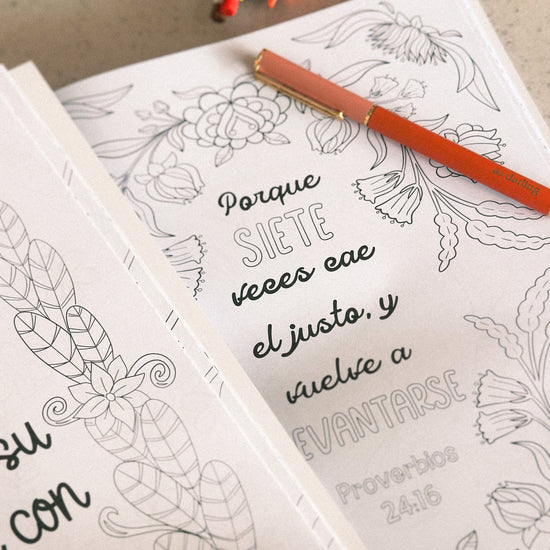 Porque
SIETE
veces cae
el justo, y
vuelve a
EVANTARSE
Proverbios
24:16
su
con